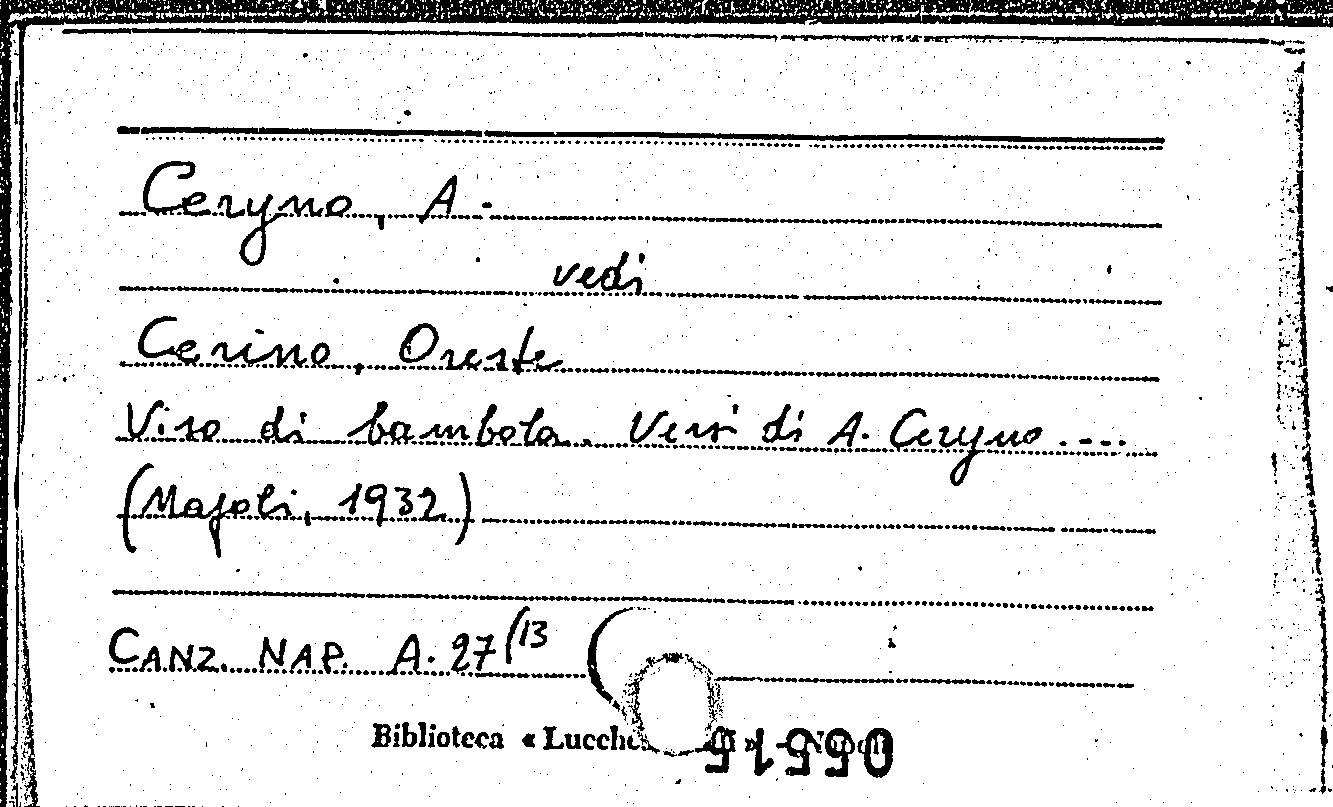 Ceryno, A.
vedi
Cerino, Oreste
Viso di bambola. Versi di A. Ceryno ....
(Napoli, 1932)
CANZ. NAP. A. 27(13
Biblioteca « Lucche